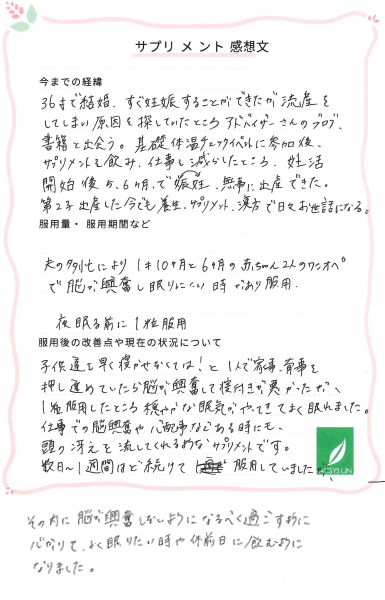 サプリメント感想文
今までの経緯
36才で結婚、すぐ妊娠することができたが流産を
してしまい原因を探していたところアドバイザーさんのブログ、
書籍と出会う。基礎体温チェックイベントに参加後、
サプリメントを飲み、仕事も減らしたところ、妊活
開始後5、6ヶ月で妊娠、無事に出産できた。
第2子出産した今でも養生、サプリメント、漢方で日々お世話になる。
服用量・服用期間など
夫の多忙により1才10ヶ月と6ヶ月の赤ちゃん2人のワンオペ
で脳が興奮し眠りにくい時があり服用。
夜眠る前に1粒服用
服用後の改善点や現在の状況について
子供達を早く寝かせなくては!と1人で家事、育児を
押し進めていたら脳が興奮して寝付きが悪かったが、
1粒服用したところ穏やかな眠気がやってきてよく眠れました。
仕事での脳興奮や心配事などある時にも、
頭の冴えを流してくれるようなサプリメントです。
数日~1週間ほど続けて服用していましたが、
CSYSUN
その内に脳が興奮しないようになるべく過ごすように
心がけて、よく眠りたい時や休前日に飲むように
なりました。